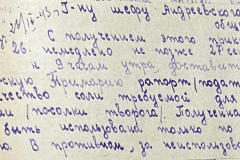 21/V-43. Г-ну шефу Андреевского
С получением этого прика
26. немедленно не позже 27 се
к 9 часам утра доставить
скую Примарию рапорт/подат
чество соли требуемой для
ни/посолки творога/. Полученна
быть использована только по
в. В противном, за неисполь